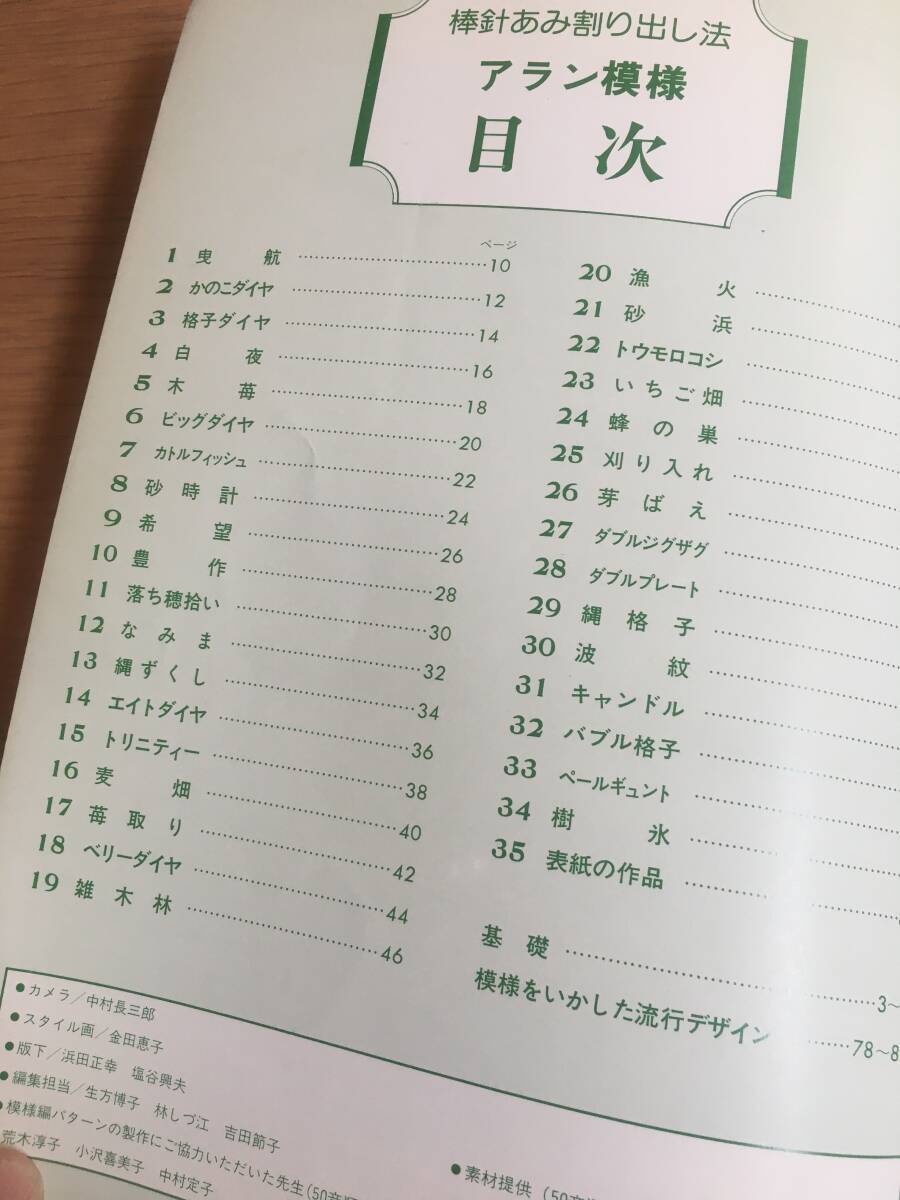 棒針あみ割り出し法
アラン模様
目次
ページ
1 曳航 10
2 かのこダイヤ 12
3 格子ダイヤ 14
4 白夜 16
5 木苺 18
6 ビッグダイヤ 20
7 カトルフィッシュ 22
8 砂時計 24
9 希望 26
10 豊作 28
11 落ち穂拾い 30
12 なみま 32
13 縄ずくし 34
14 エイトダイヤ 36
15 トリニティー 38
16 麦畑 40
17 苺取り 42
18 ベリーダイヤ 44
19 雑木林 46
20 漁火
21 砂浜
22 トウモロコシ
23 いちご畑
24 蜂の巣
25 刈り入れ
26 芽ばえ
27 ダブルジグザグ
28 ダブルプレート
29 縄格子
30 波紋
31 キャンドル
32 バブル格子
33 ペールギュント
34 樹氷
35 表紙の作品
基礎 3~
模様をいかした流行デザイン 78~8
●カメラ/中村長三郎
●スタイル画/金田恵子
●版下/浜田正幸 塩谷興夫
●編集担当/生方博子 林しづ江 吉田節子
●模様編パターンの製作にご協力いただいた先生(50音順
荒木淳子 小沢喜美子 中村定子
●素材提供(50音